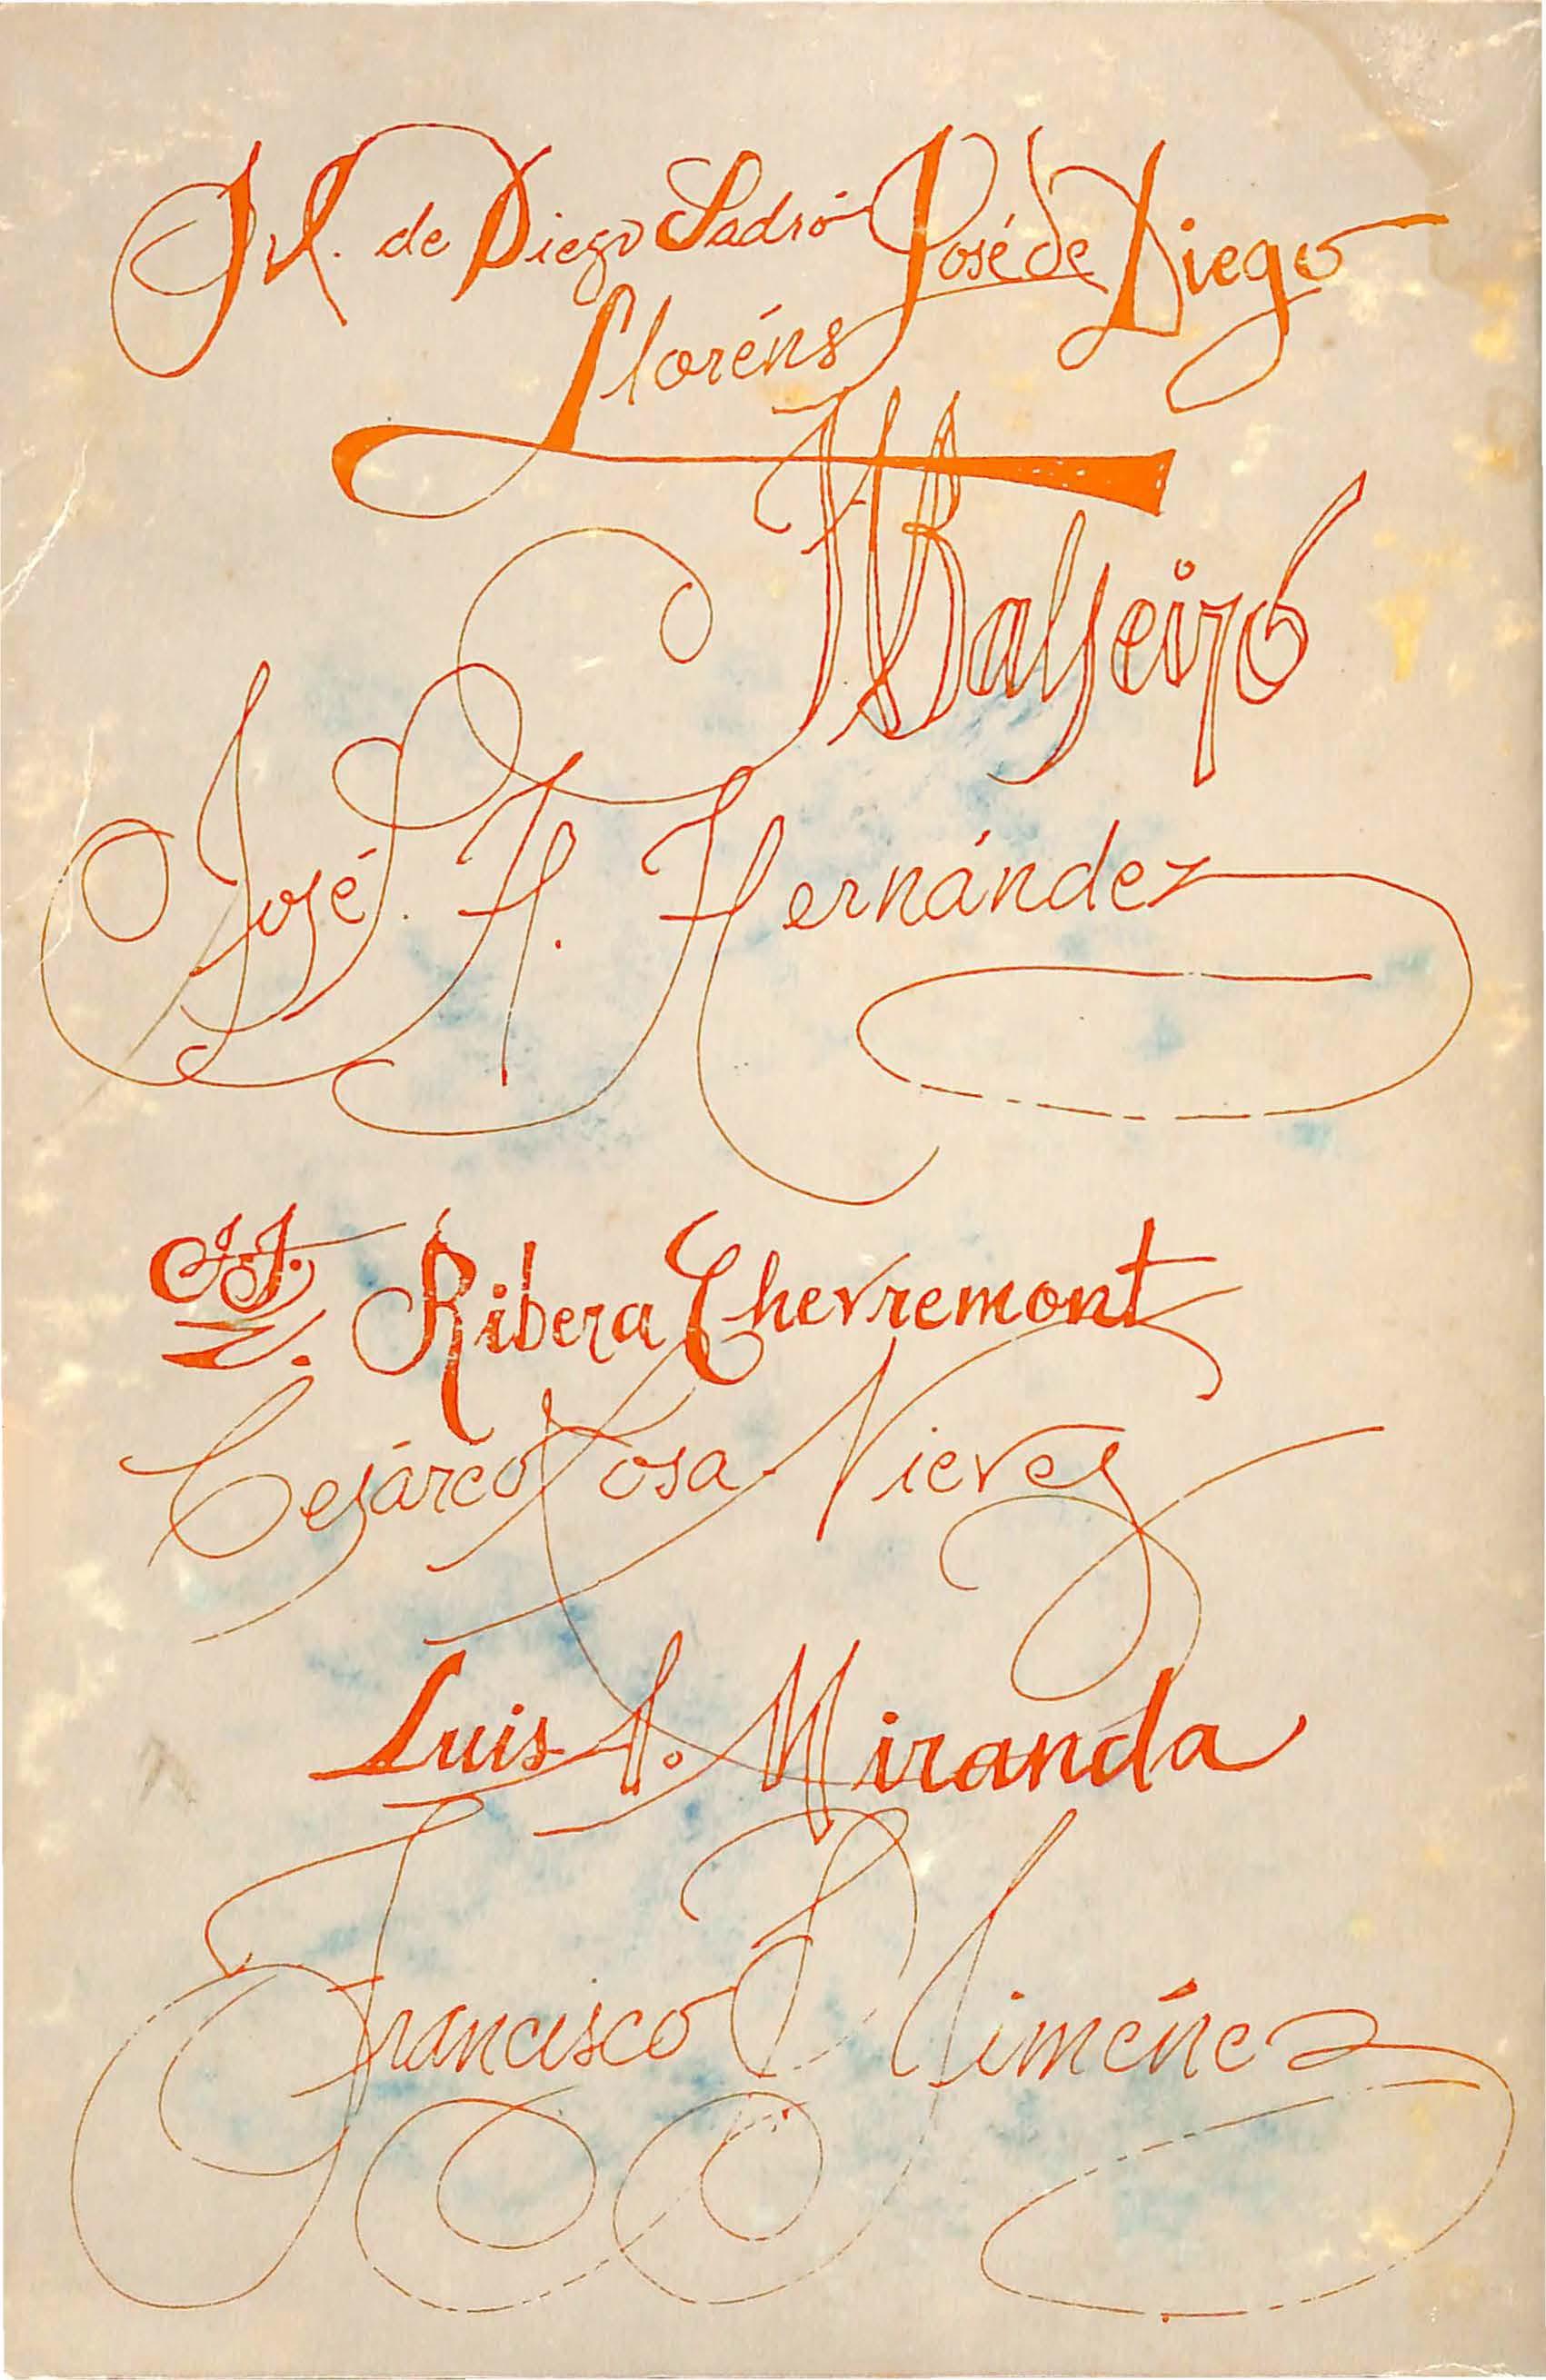 J. I. de Diego Padró José de Diego
Lloréns
A Balseiro
José P. H. Hernández
J.J. Ribera Chevremont
Cesáreo Rosa Nieves
Luis A. Miranda
Francisco Jiménez